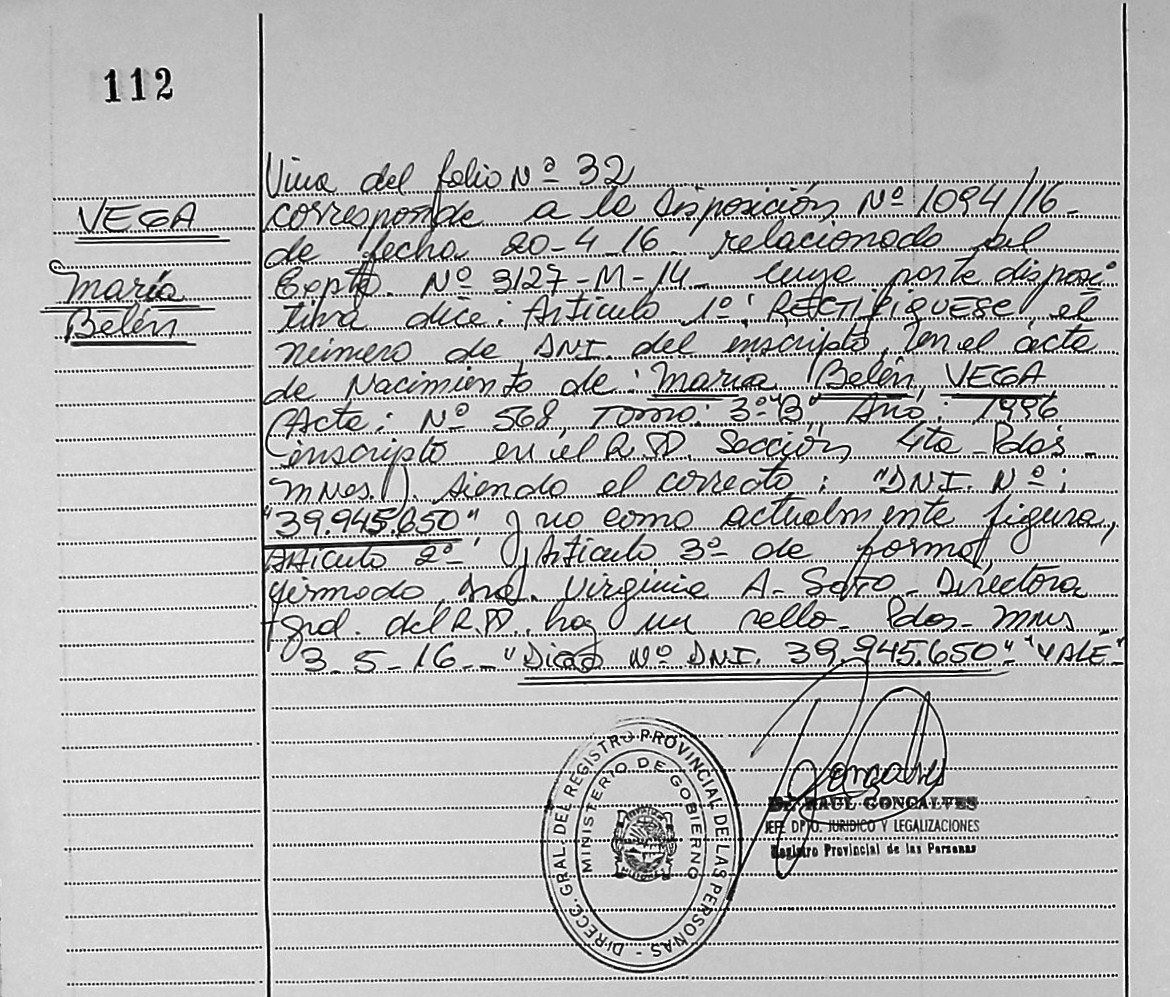 112
VEGA
María
Belén
Vina del folio Nº 32
corresponde a la disposición Nº 1094/16-
de fecha 20-4-16 relacionado al
Expte. Nº 3127-M-14- cuya parte disposi
tiva dice: Artículo 1º: RECTIFIQUESE, el
número de DNI. del inscripto, en el acta
de Nacimiento de: María Belén, VEGA
(Acta: Nº 568, Tomo: 3º"B" Año: 1996
inscripto en el R.PP. Sección 4ta-Pdas-
mnes.). siendo el correcto: "DNI. Nº:
"39.945.650" y no como actualmente figura,
Artículo 2º y Artículo 3º de forma,
firmado, Virginia A- Soto- Directora
Gral. del R.PP. hay un sello- Pdas- mnes
3-5-16-- "Digo Nº DNI. 39.945.650" "VALE"
DIRECC. GRAL. DEL REGISTRO PROVINCIAL DE LAS PERSONAS -
MINISTERIO DE GOBIERNO
MISIONES
RAUL GONCALVES
JEFE DPTO. JURIDICO Y LEGALIZACIONES
Registro Provincial de las Personas